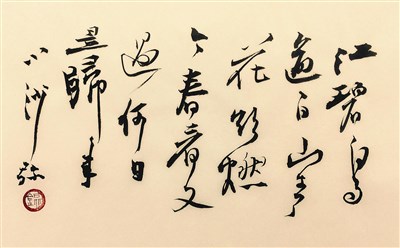 江碧鸟
逾白山青
花欲燃
今春看又
過何日
是歸年
小沙弥